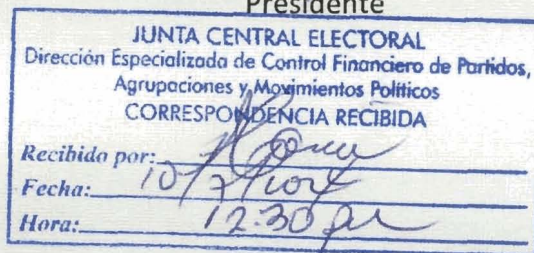 Presidente
JUNTA CENTRAL ELECTORAL
Dirección Especializada de Control Financiero de Partidos,
Agrupaciones y Movimientos Políticos
CORRESPONDENCIA RECIBIDA
Recibido por:
Fecha: 10/7/
Hora: 12:30 pm